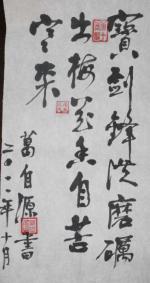 寶劍鋒從磨礪
出梅花香自苦
寒來
葛自源書
二〇一一年十月